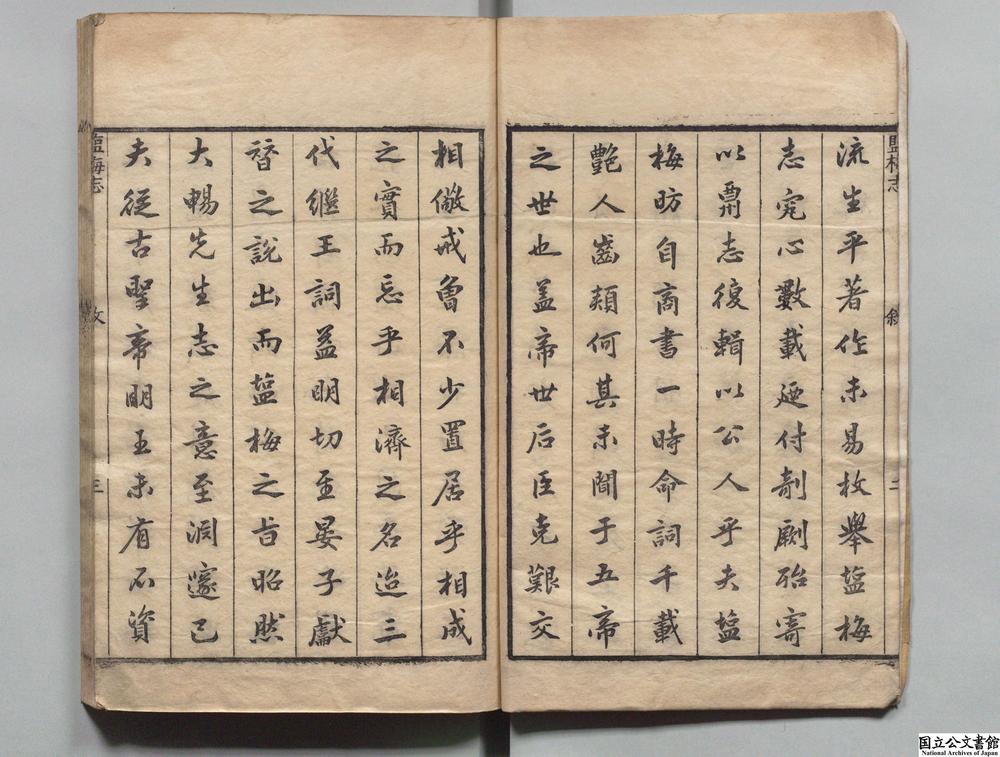 流生平著作未易枚舉塩梅
志究心數載延付剞劂殆寄
以鼎志復輯以公人乎夫塩
梅昉自商書一時命詞千載
艷人齒頰何其未聞于五帝
之世也盖帝世后臣克艱交
相儆戒曾不少置居乎相成
之實而忘乎相濟之名迨三
代繼王詞益明切至晏子獻
替之說出而塩梅之旨昭然
大暢先生志之意至淵邃已
夫從古聖帝明王未有不資
塩梅志
敘
二
塩梅志
三
国立公文書館
National Archives of Japan